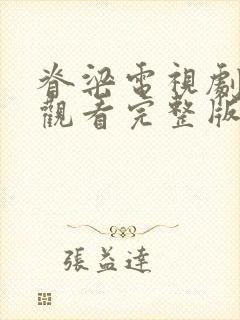 脊梁電視劇
觀看完整版
張益達